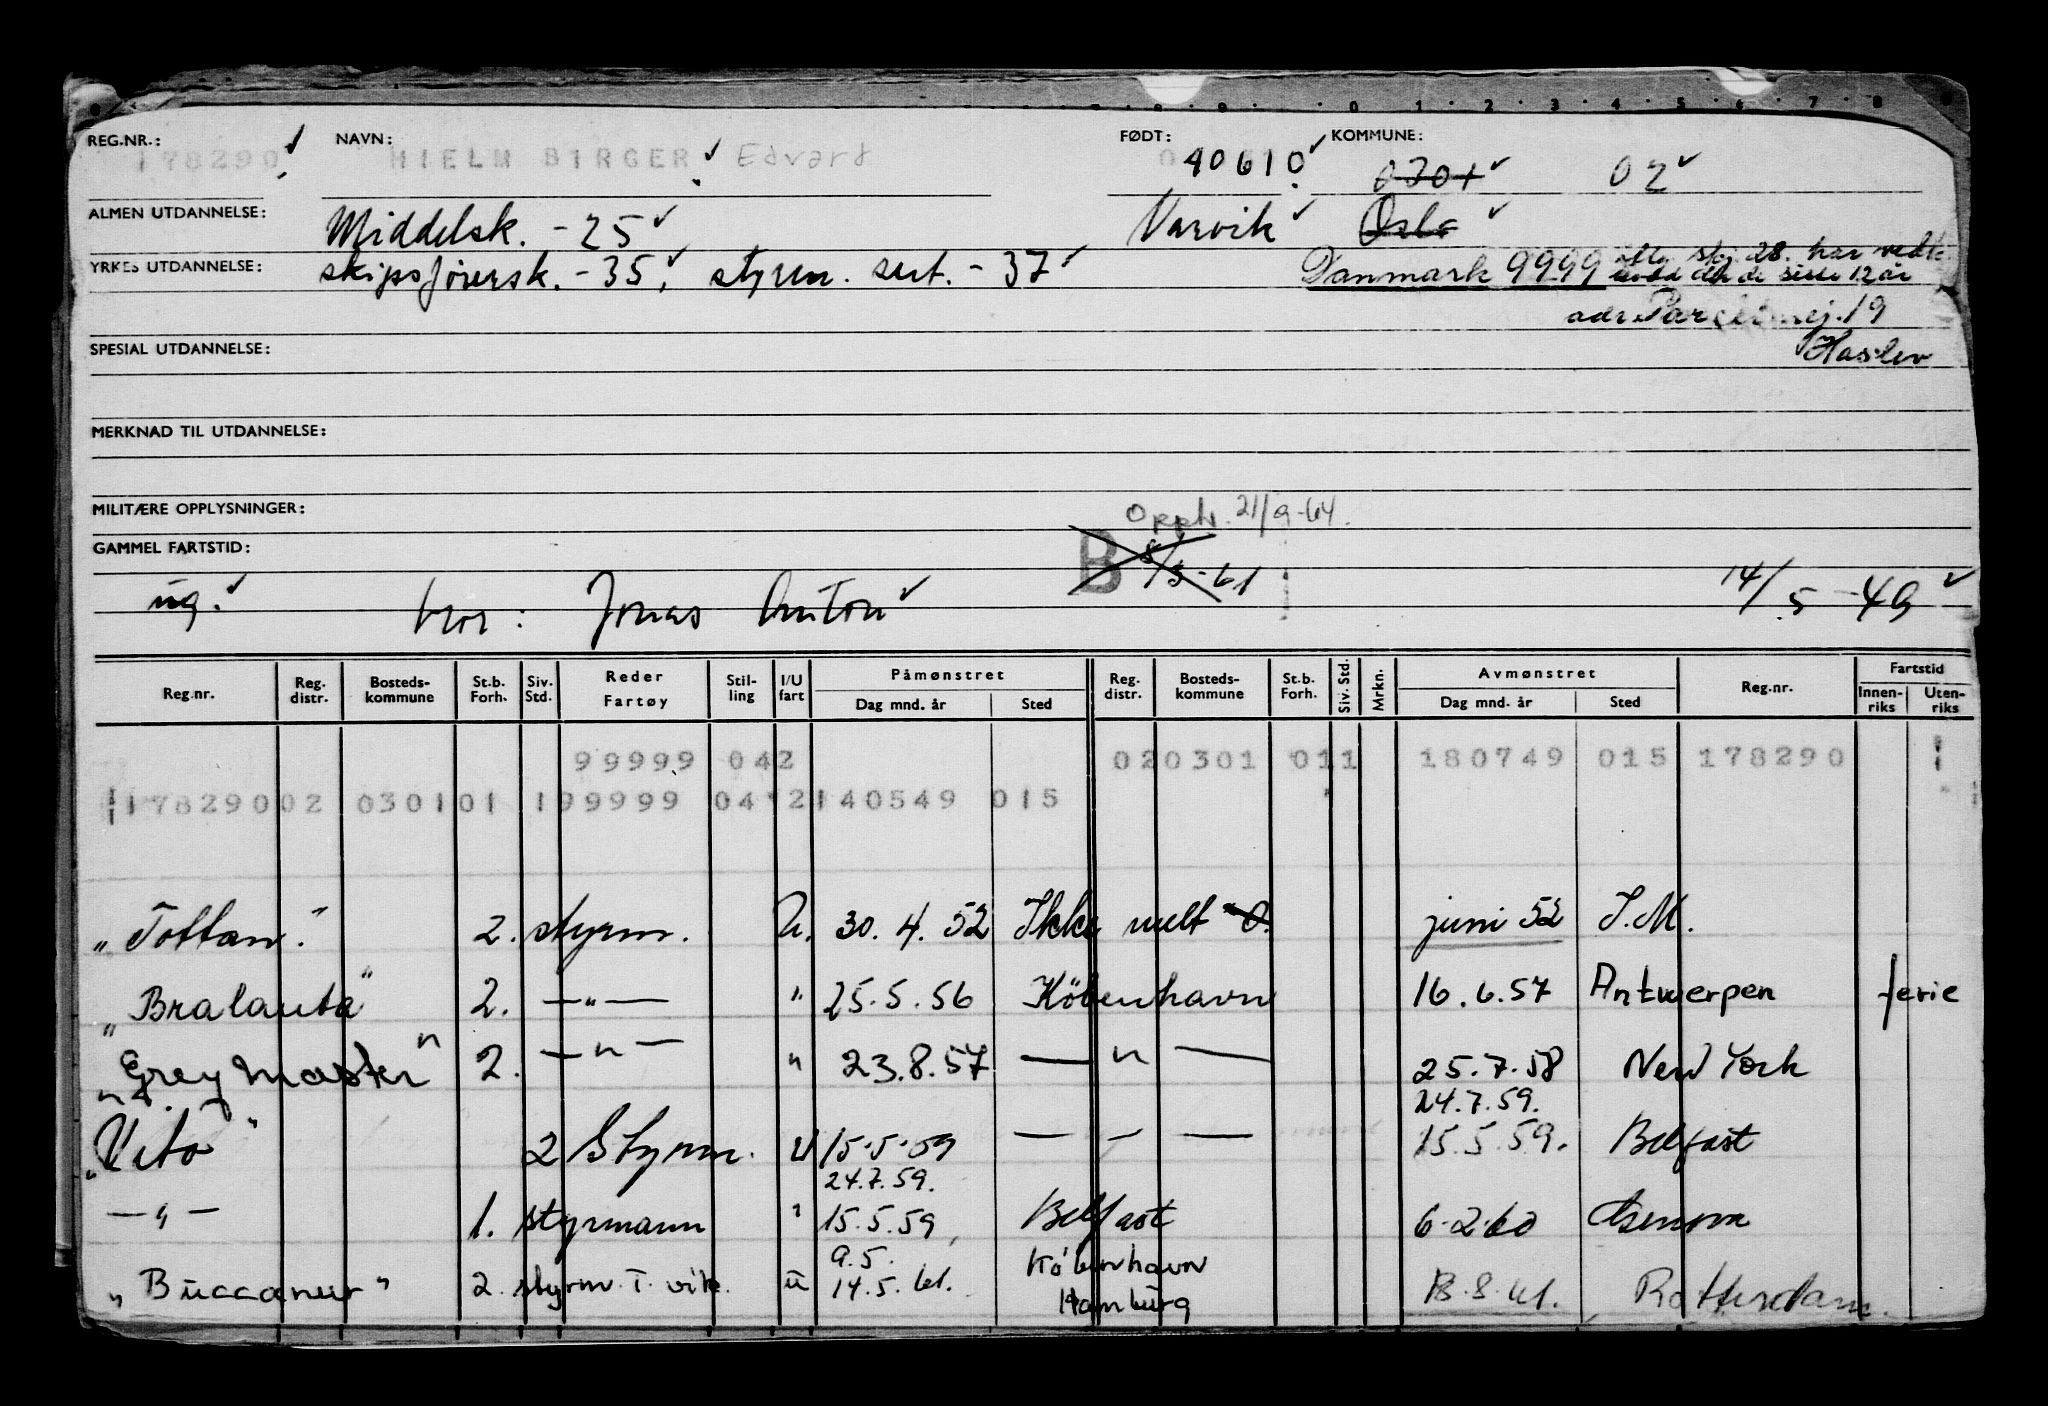 0 1 2 3 4 5 6 7 8
REG.NR.: NAVN: FØDT: KOMMUNE:
178290 HIELM BIRGER Edvard 40610 0301 02
ALMEN UTDANNELSE: Middelsk. - 25 Narvik Oslo
YRKES UTDANNELSE: skipsførersk. - 35, styrm. sert. - 37 Danmark 9999 skj 28. har vedk.
de siste 12 år
adr. 19
SPESIAL UTDANNELSE: Haslev
MERKNAD TIL UTDANNELSE:
MILITÆRE OPPLYSNINGER: Opph. 21/9-64.
GAMMEL FARTSTID: B 8/5-61
ug. far: Jonas Anton 14/5-49
Reg.nr. Reg. distr. Bosteds-kommune St.b. Forh. Siv. Std. Reder Fartøy Stil-ling I/U fart Påmønstret Dag mnd. år Sted Reg. distr. Bosteds-kommune St.b. Forh. Siv. Std. Mrkn. Avmønstret Dag mnd. år Sted Reg.nr. Fartstid Innen-riks Uten-riks
99999 042 020301 011 180749 015 178290
17829002 030101 199999 04 2140549 015
"Tottan." 2. styrm. U. 30. 4. 52 Ikke meldt juni 52 I.M.
"Bralanta" 2. —"— " 25.5.56 København 16.6.57 Antwerpen ferie
"Grey Master" 2. —"— " 23.8.57 —"— 25.7.58 New York
24.7.59.
"Vito" 2 Styrm. U 15-5-59 — — — 15.5.59. Belfast
24.7.59.
—"— 1. styrmann " 15.5.59, Belfast 6-2-60 Genova
9.5. København
"Buccaneer" 2. styrm. I. vik. u 14.5.61. Hamburg 18.8.61. Rotterdam.